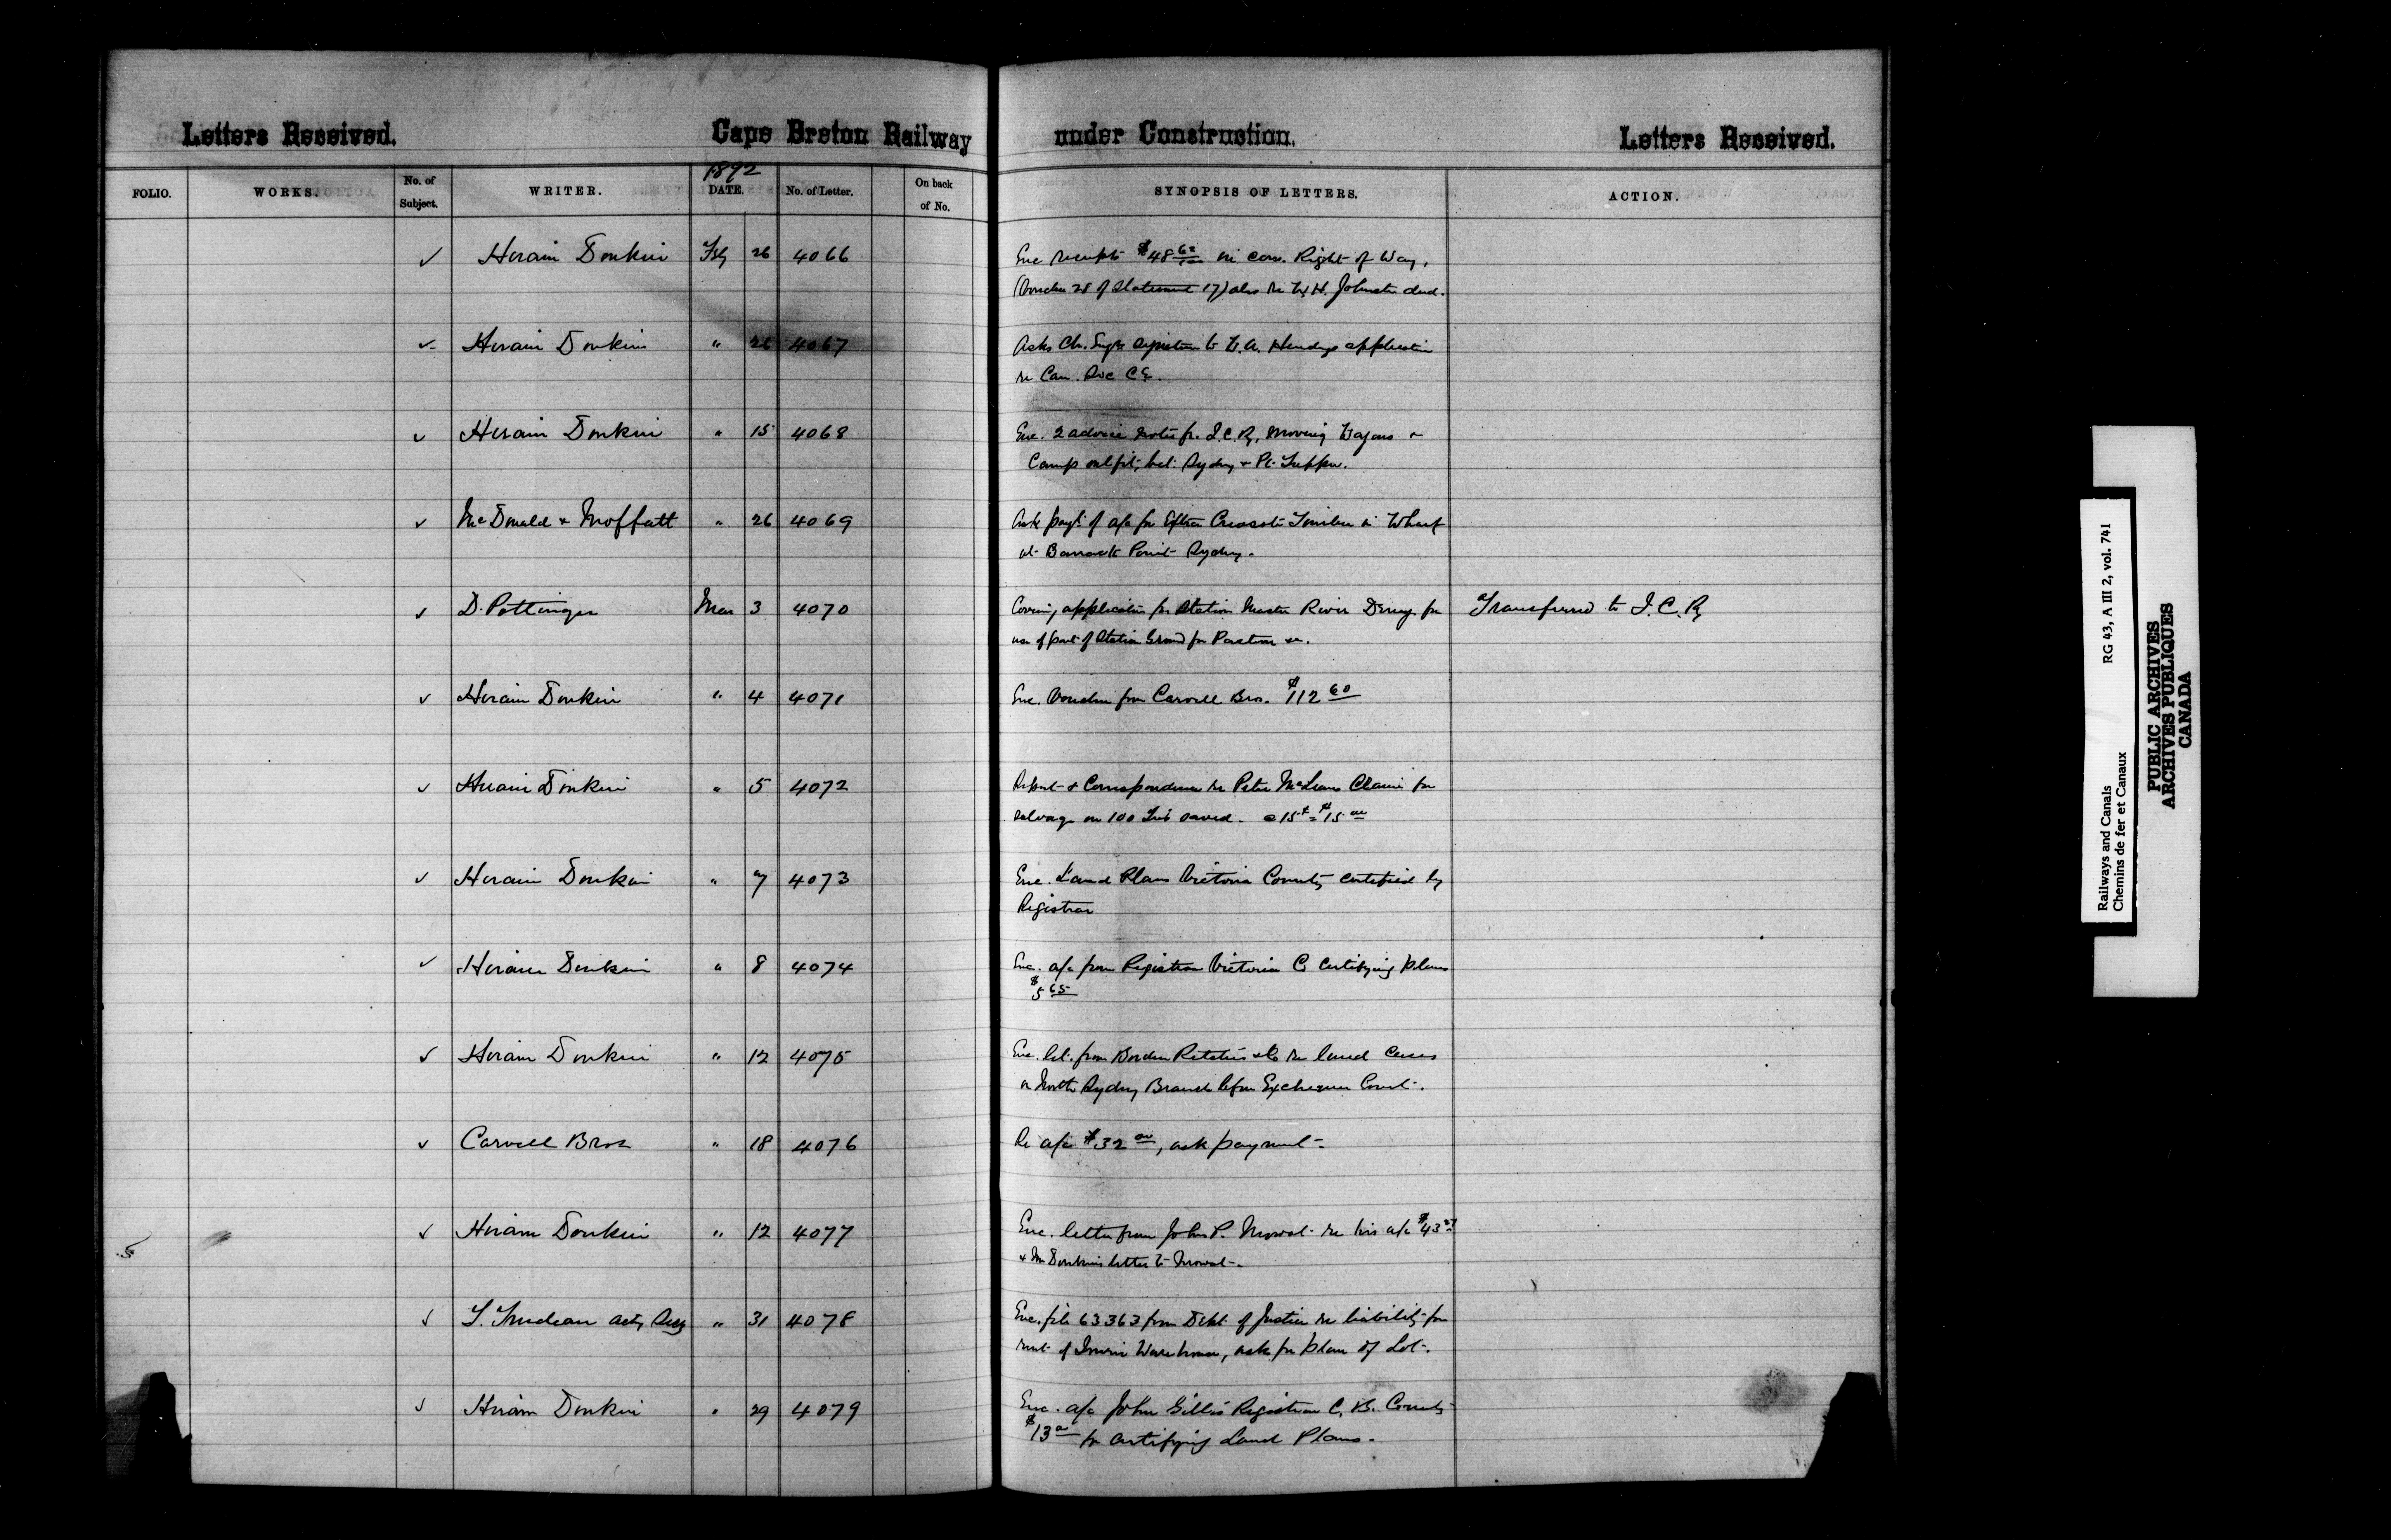 Letters Received. Cape Breton Railway under Construction. Letters Received.
1892
FOLIO. WORKS. No. of Subject. WRITER. DATE. No. of Letter. On back of No. SYNOPSIS OF LETTERS. ACTION.
✓ Hiram Donkin Feb 26 4066 Enc receipt $48 62/100 in con. Right of Way,
(Voucher 28 of Statement 17) also re W. H. Johnston deed.
✓ Hiram Donkin " 26 4067 Asks Ch. Engrs signature to W. A. Hendrys application
re Can. Soc C E.
✓ Hiram Donkin " 15 4068 Enc. 2 advice notes fr. I.C.R, moving Wagons &
Camp outfit, bet. Sydney & Pt. Tupper.
✓ McDonald & Moffatt " 26 4069 Ask payt of a/c for Extra Creosote Timber in Wharf
at Barrack Point Sydney.
✓ D. Pottinger Mar 3 4070 Covering application for Station Master River Denys for Transferred to I. C. R
use of part of Station Ground for Pasture &c.
✓ Hiram Donkin " 4 4071 Enc. Voucher from Carvell Bros. $112 60
✓ Hiram Donkin " 5 4072 Report & Correspondence re Peter McLeans Claim for
salvage on 100 saved. @ 15¢ = $15 00
✓ Hiram Donkin " 7 4073 Enc. Land Plans Victoria County certified by
Registrar
✓ Hiram Donkin " 8 4074 Enc. a/c from Registrar Victoria Co certifying plans
$5 65
✓ Hiram Donkin " 12 4075 Enc. let. from Borden Ritchie & Co re land cases
on North Sydney Branch before Exchequer Court.
✓ Carvell Bros " 18 4076 Re a/c $32 00, ask payment.
✓ Hiram Donkin " 12 4077 Enc. letter from John P. Mowat re his a/c $43 27
& Mr Donkins letter to Mowat.
✓ T. Trudeau actg Secy " 31 4078 Enc. file 63363 from Dept of Justice re liability for
rent of Warehouse, ask for plan of Lot.
✓ Hiram Donkin " 29 4079 Enc. a/c John Gillis Registrar C. B. County
$13 00 for certifying Land Plans.
RG 43, A III 2, vol. 741
Railways and Canals
Chemins de fer et Canaux
PUBLIC ARCHIVES
ARCHIVES PUBLIQUES
CANADA